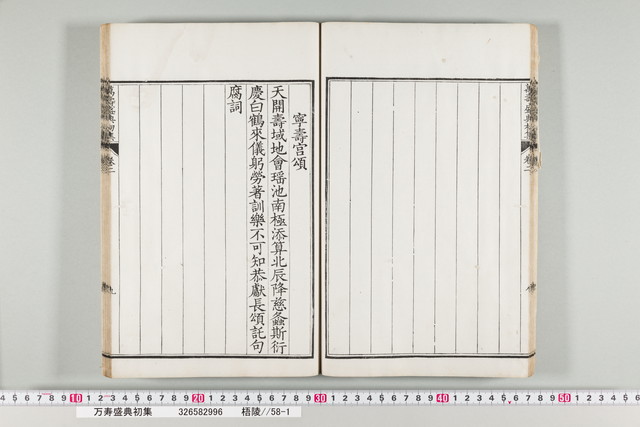 寧壽宮頌
天開壽域地會瑶池南極添算北辰降慈螽斯衍
慶白鶴來儀躬勞著訓樂不可知恭獻長頌託句
腐詞
万寿盛典初集 326582996 梧陵//58-1